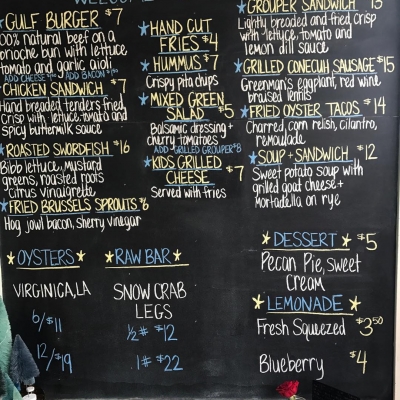 GULF BURGER $7
100% natural beef on a
brioche bun with lettuce
tomato and garlic aioli
ADD CHEESE ADD BACON
CHICKEN SANDWICH $7
Hand breaded tenders fried
crisp with lettuce, tomato and
spicy buttermilk sauce
ROASTED SWORDFISH $16
Bibb lettuce, mustard
greens, roasted roots
citrus vinaigrette
FRIED BRUSSELS SPROUTS $6
Hog jowl bacon, sherry vinegar
HAND CUT
FRIES $4
HUMMUS $7
Crispy pita chips
MIXED GREEN
SALAD $5
Balsamic dressing +
cherry tomatoes
ADD GRILLED GROUPER $8
KIDS GRILLED
CHEESE $7
Served with fries
GROUPER SANDWICH
Lightly breaded and fried crisp
with lettuce, tomato and
lemon dill sauce
GRILLED CONECUH SAUSAGE $15
Greenman's eggplant, red wine
braised lentils
FRIED OYSTER TACOS $14
Charred corn relish, cilantro,
remoulade
SOUP + SANDWICH $12
Sweet potato soup with
grilled goat cheese +
Mortadella on rye
OYSTERS
VIRGINICA, LA
6/$11
12/$19
RAW BAR
SNOW CRAB
LEGS
½# $12
1# $22
DESSERT $5
Pecan Pie, sweet
cream
LEMONADE
Fresh Squeezed $3.50
Blueberry $4